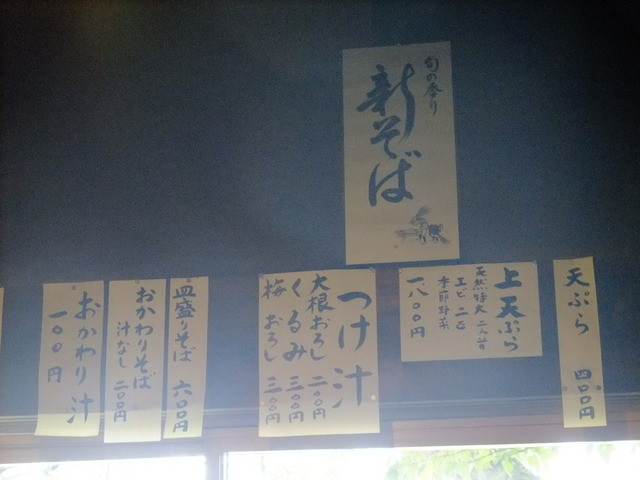 旬の香り
新そば
天ぷら 四〇〇円
上天ぷら
天然特大 二人前
エビ 二匹
季節野菜
一八〇〇円
つけ汁
大根おろし 二〇〇円
くるみ 三〇〇円
梅おろし 三〇〇円
皿盛りそば 六〇〇円
おかわりそば
汁なし 二〇〇円
おかわり汁
一〇〇円